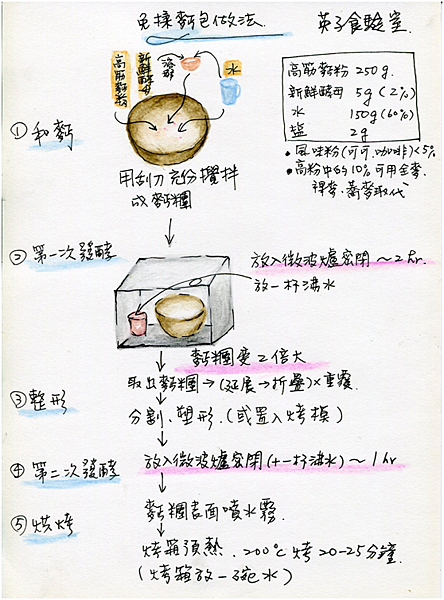 免揉麵包做法.
英子食驗室.
高筋麵粉
新鮮酵母
水
高筋麵粉 250g.
新鮮酵母 5g (2%)
水 150g (60%)
鹽 2g
• 風味粉(可可.咖啡)<5%
• 高粉中的10%可用全麥.
裸麥.蕎麥取代
① 和麵
用刮刀充份攪拌
成麵糰
② 第一次發酵
放入微波爐密閉~2hr.
放一杯沸水
麵糰變2倍大
取出麵糰→(延展→折疊)×重覆
③ 整形
分割、塑形.(或置入烤模)
④ 第二次發酵
放入微波爐密閉(+一杯沸水)~1hr
麵糰表面噴水霧.
⑤ 烘烤
烤箱預熱.200℃烤20-25分鐘.
(烤箱放一碗水)